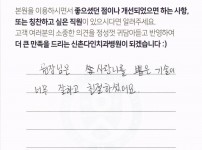 본원을 이용하시면서 좋으셨던 점이나 개선되었으면 하는 사항,
또는 칭찬하고 싶은 직원이 있으시다면 알려주세요.
고객 여러분의 소중한 의견을 정성껏 귀담아듣고 반영하여
더 큰 만족을 드리는 신촌다인치과병원이 되겠습니다 :)
원장님은 사랑니를 뽑은 기술이
너무 잘하고 친절하셨어요.